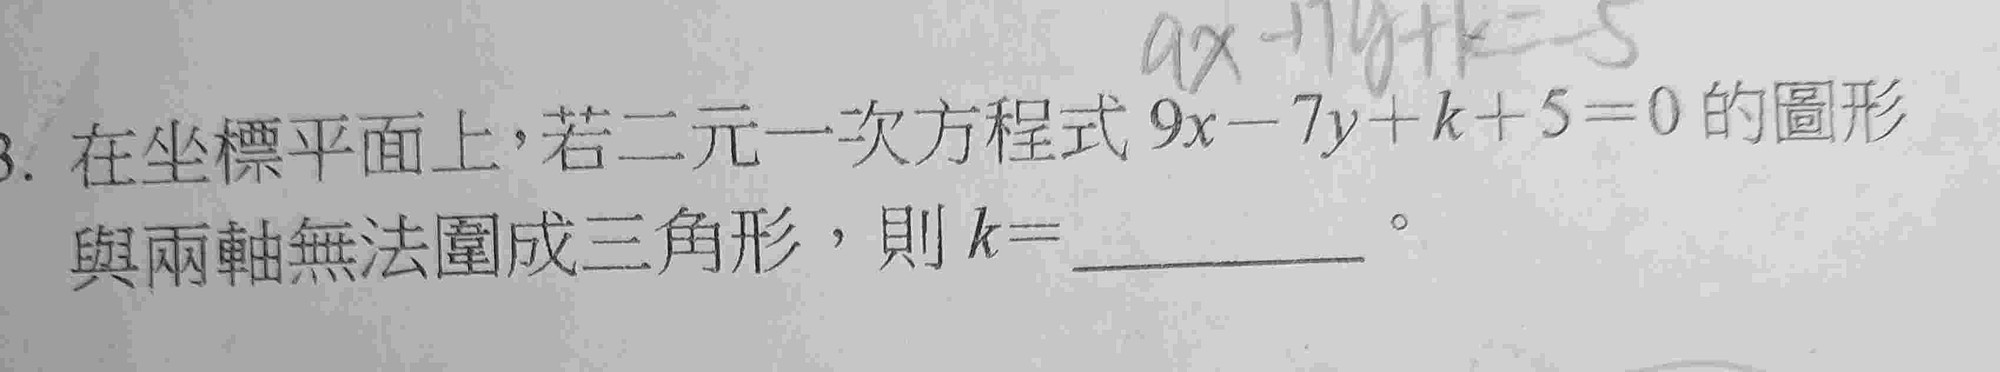 9x-7y+k=-5
3. 在坐標平面上，若二元一次方程式 9x－7y＋k＋5＝0 的圖形
與兩軸無法圍成三角形，則 k＝________。